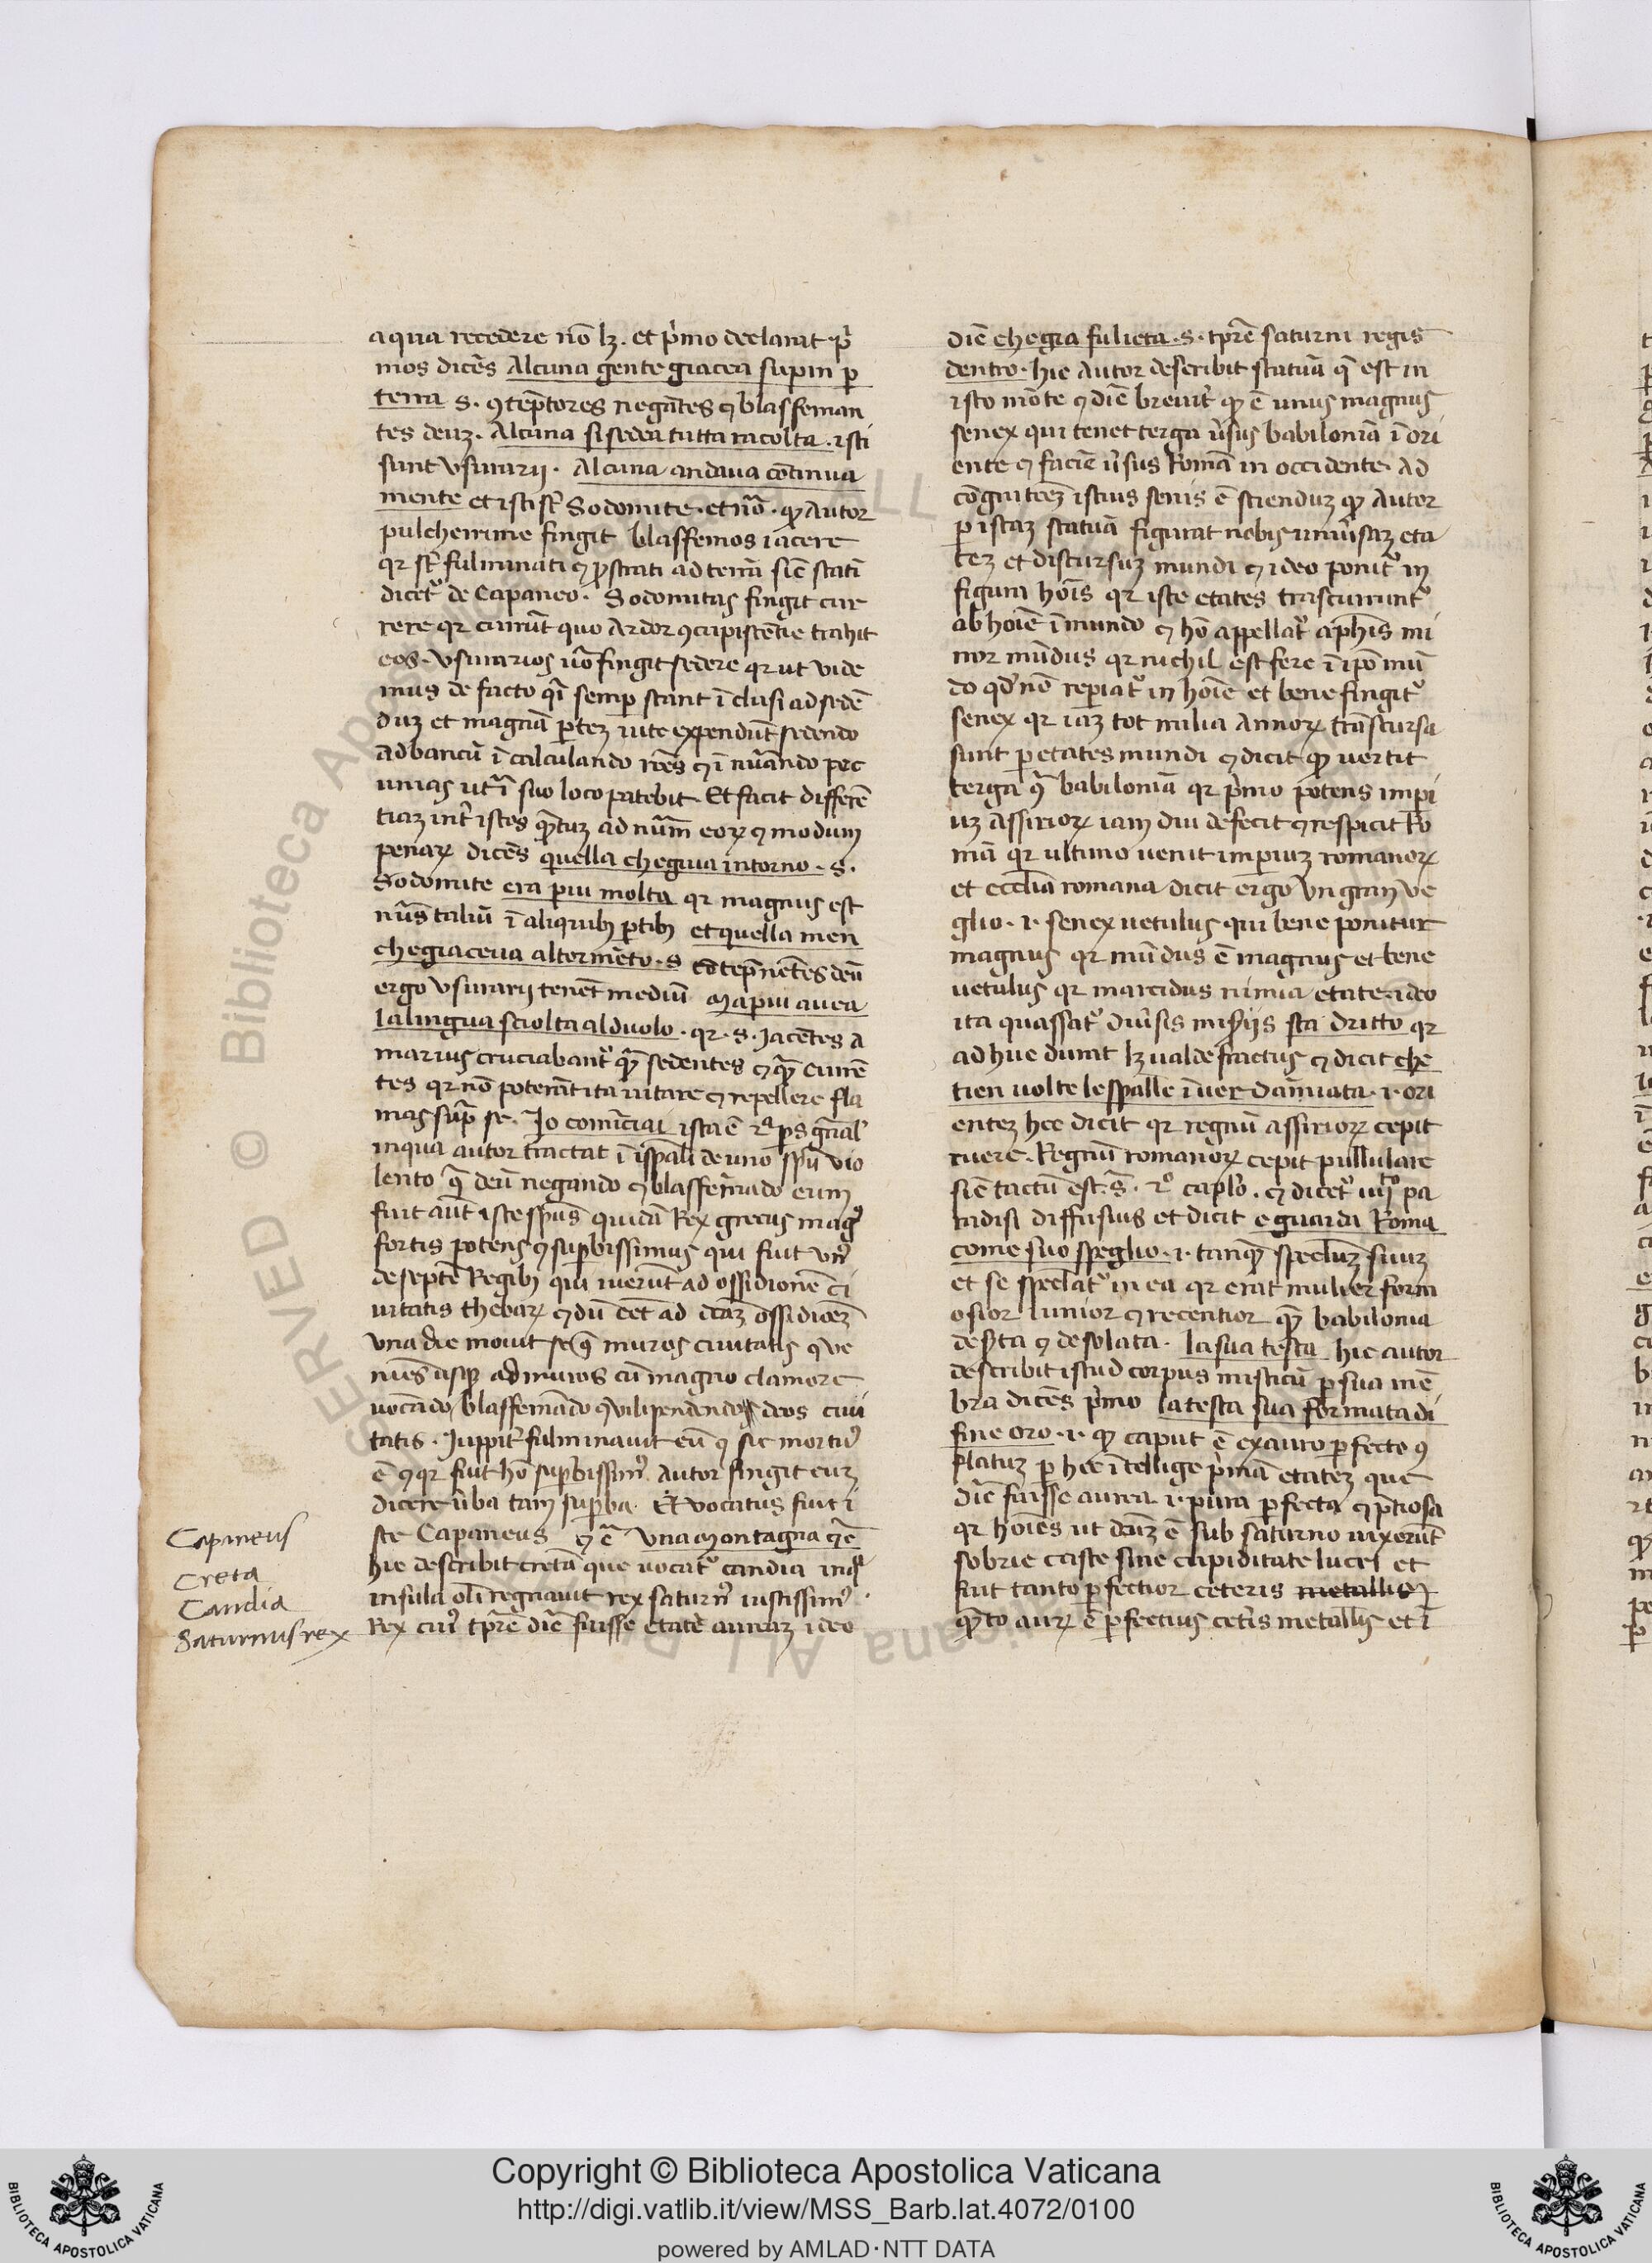 aqua recedere nō lꝫ. et p̄mo declarat p̄
mos dicēs Alcuna gente giacea supin p̱
terra .s. ꝯtēptores negātes ⁊ blasfeman
tes deuꝫ. Alcuna si sedea tutta racolta . isti
sunt vsurarij. Alcuna andaua cōtinua
mente et isti sʳ Sodomite. et nō. ꝙ Autor
pulcherrime fingit blasfemos iacere
qꝛ sʳ fulminati ⁊ ꝓstrati ad terrā sic̄ statī
dicetʳ de Capaneo. Sodomitas fingit cur
rere qꝛ currūt quo Ardor ꝯcupiscētie trahit
eos. vsurarios uō fingit sedere qꝛ ut vide
mus de facto qͣi semp̱ stant ī clusi ad sedē
duꝫ et magnā p̱teꝫ uite expendūt sedendo
ad bancū ī calculando rōēs ⁊ ī nūando pec
unias ut ī suo loco patebit. Et facit differē
tiaꝫ int̄ istos qͣꝫtuꝫ ad nūm eoꝝ ⁊ modum
penaꝝ dicēs quella che giua intorno .s.
Sodomite era piu molta qꝛ magnus est
nūs taliū ī aliquibꝫ p̱tibꝫ et quella men
che giaceua al tormēto .s. cōtēpnētes deū
ergo vsurarij tenēt mediū ma piu auea
la lingua sciolta al duolo . qꝛ .s. Jacētes A
marius cruciabantʳ qͣꝫ sedentes ⁊ qͣꝫ currē
tes qꝛ nō poterāt ita uitare ⁊ repellere fla
mas sup̱ se. Jo comīciai ista ē 2ͣ p̱s gn̄al'
in qua autor tractat ī isp̱ali de uno sp̄u vio
lento ꝯͣ deū negando ⁊ blasfemādo eum
fuit aūt iste sp̄us quidā Rex grecus magꝰ
fortis potens ⁊ sup̱bissimus qui fuit vnꝰ
de septē Regibꝫ qui iuerūt ad ossidionē ci
uitatis thebaꝝ ⁊ dū eēt ad dc̄aꝫ ossidiōeꝫ
vna die mouit se ꝯͣ muros ciuitatis ⁊ ve
niēs usqꝫ ad muros cū magno clamore
uocādo blasfemādo ⁊ vilipendendo deos ciui
tatis. Juppit̄ fulminauit eū ⁊ sic mortuꝰ
ē ⁊ qꝛ fuit hō sup̱bissimꝰ Autor fingit euꝫ
dicere ūba tam sup̱ba. Et vocatus fuit i
ste Capaneus ⁊ c̄ Vna montagna ⁊ c̄
hic describit cretā que uocatʳ candia in qͣ
insula olī regnauit rex saturnꝰ iustissimꝰ
Rex cuiꝰ tp̱re dic̄ fuisse etatē aureaꝫ ideo
Capaneus
Creta
Candia
Saturnus rex
dic̄ che gia fu lieta .s. tp̱re saturni regis
dentro. hic Autor describit statuā q̄ est in
isto mōte ⁊ dic̄ breuit̄ ꝙ ē unus magnus
senex qui tenet terga ūsus babiloniā ī ori
ente ⁊ faciē ūsus Romā in occidente. Ad
cōgnitōeꝫ istius senis ē sciendуꝫ ꝙ Autor
p̱ istaꝫ statuā figurat nobis uniūsaꝫ eta
teꝫ et discursuꝫ mundi ⁊ ideo ponitʳ in
figura hōis qꝛ iste etates trascurrūtʳ
ab hoīe ī mundo ⁊ hō appellatʳ a ph̄is mi
nor mūdus qꝛ nichil est fere ī ip̄o mū
do qd' nō rep̱iatʳ in hoīe et bene fingitʳ
senex qꝛ iaꝫ tot milia Annoꝝ trāscursa
sunt p̱ etates mundi ⁊ dicit ꝙ vertit
terga ꝯͣ babiloniā qꝛ p̄mo potens imp̱i
uꝫ Assirioꝝ iam diu defecit ⁊ respicit Ro
mā qꝛ ultimo uenit imp̱iuꝫ romanoꝝ
et ecclīa romana dicit ergo vn gran ve
glio .i. senex uetulus qui bene ponitur
magnus qꝛ mūdus ē magnus et bene
uetulus qꝛ marcidus nimia etate. ideo
ita quassatʳ diūsis mis̄ijs sta dritto qꝛ
ad huc durat lꝫ ualde fractus ⁊ dicit che
tien uolte le spalle īuer damiata .i. ori
enteꝫ hec dicit qꝛ regnū assirioꝝ cepit
ruere. Regnū romanoꝝ cepit pullulare
sic̄ tactū est .s̄. 2º capl'o. ⁊ dicetʳ iiijº pa
radisi diffusius et dicit e guarda Roma
come suo speglio .i. tanqͣꝫ specl'uꝫ suuꝫ
et se specl'atʳ in ea qꝛ erat mulier form
osior iunior ⁊ recentior qͣꝫ babilonia
des̄ta ⁊ desolata. la sua testa hic autor
describit istud corpus misticū p̱ sua mē
bra dicēs p̄mo la testa sua formata di
fine oro .i. ꝙ caput ē ex auro p̱fecto ꝯ
flatuꝫ p̱ hec ītellige p̄mā etateꝫ que
dic̄ fuisse aurea .i. pura p̱fecta ⁊ p̄tiosa
qꝛ hoīes ut dc̄uꝫ ē sub saturno uixerūt
sobrie caste sine cupiditate lucri et
fuit tanto p̱fectior ceteris metallis
qͣꝫto auꝝ ē p̱fectius cet̄is metallis et ī
Copyright © Biblioteca Apostolica Vaticana
http://digi.vatlib.it/view/MSS_Barb.lat.4072/0100
powered by AMLAD·NTT DATA